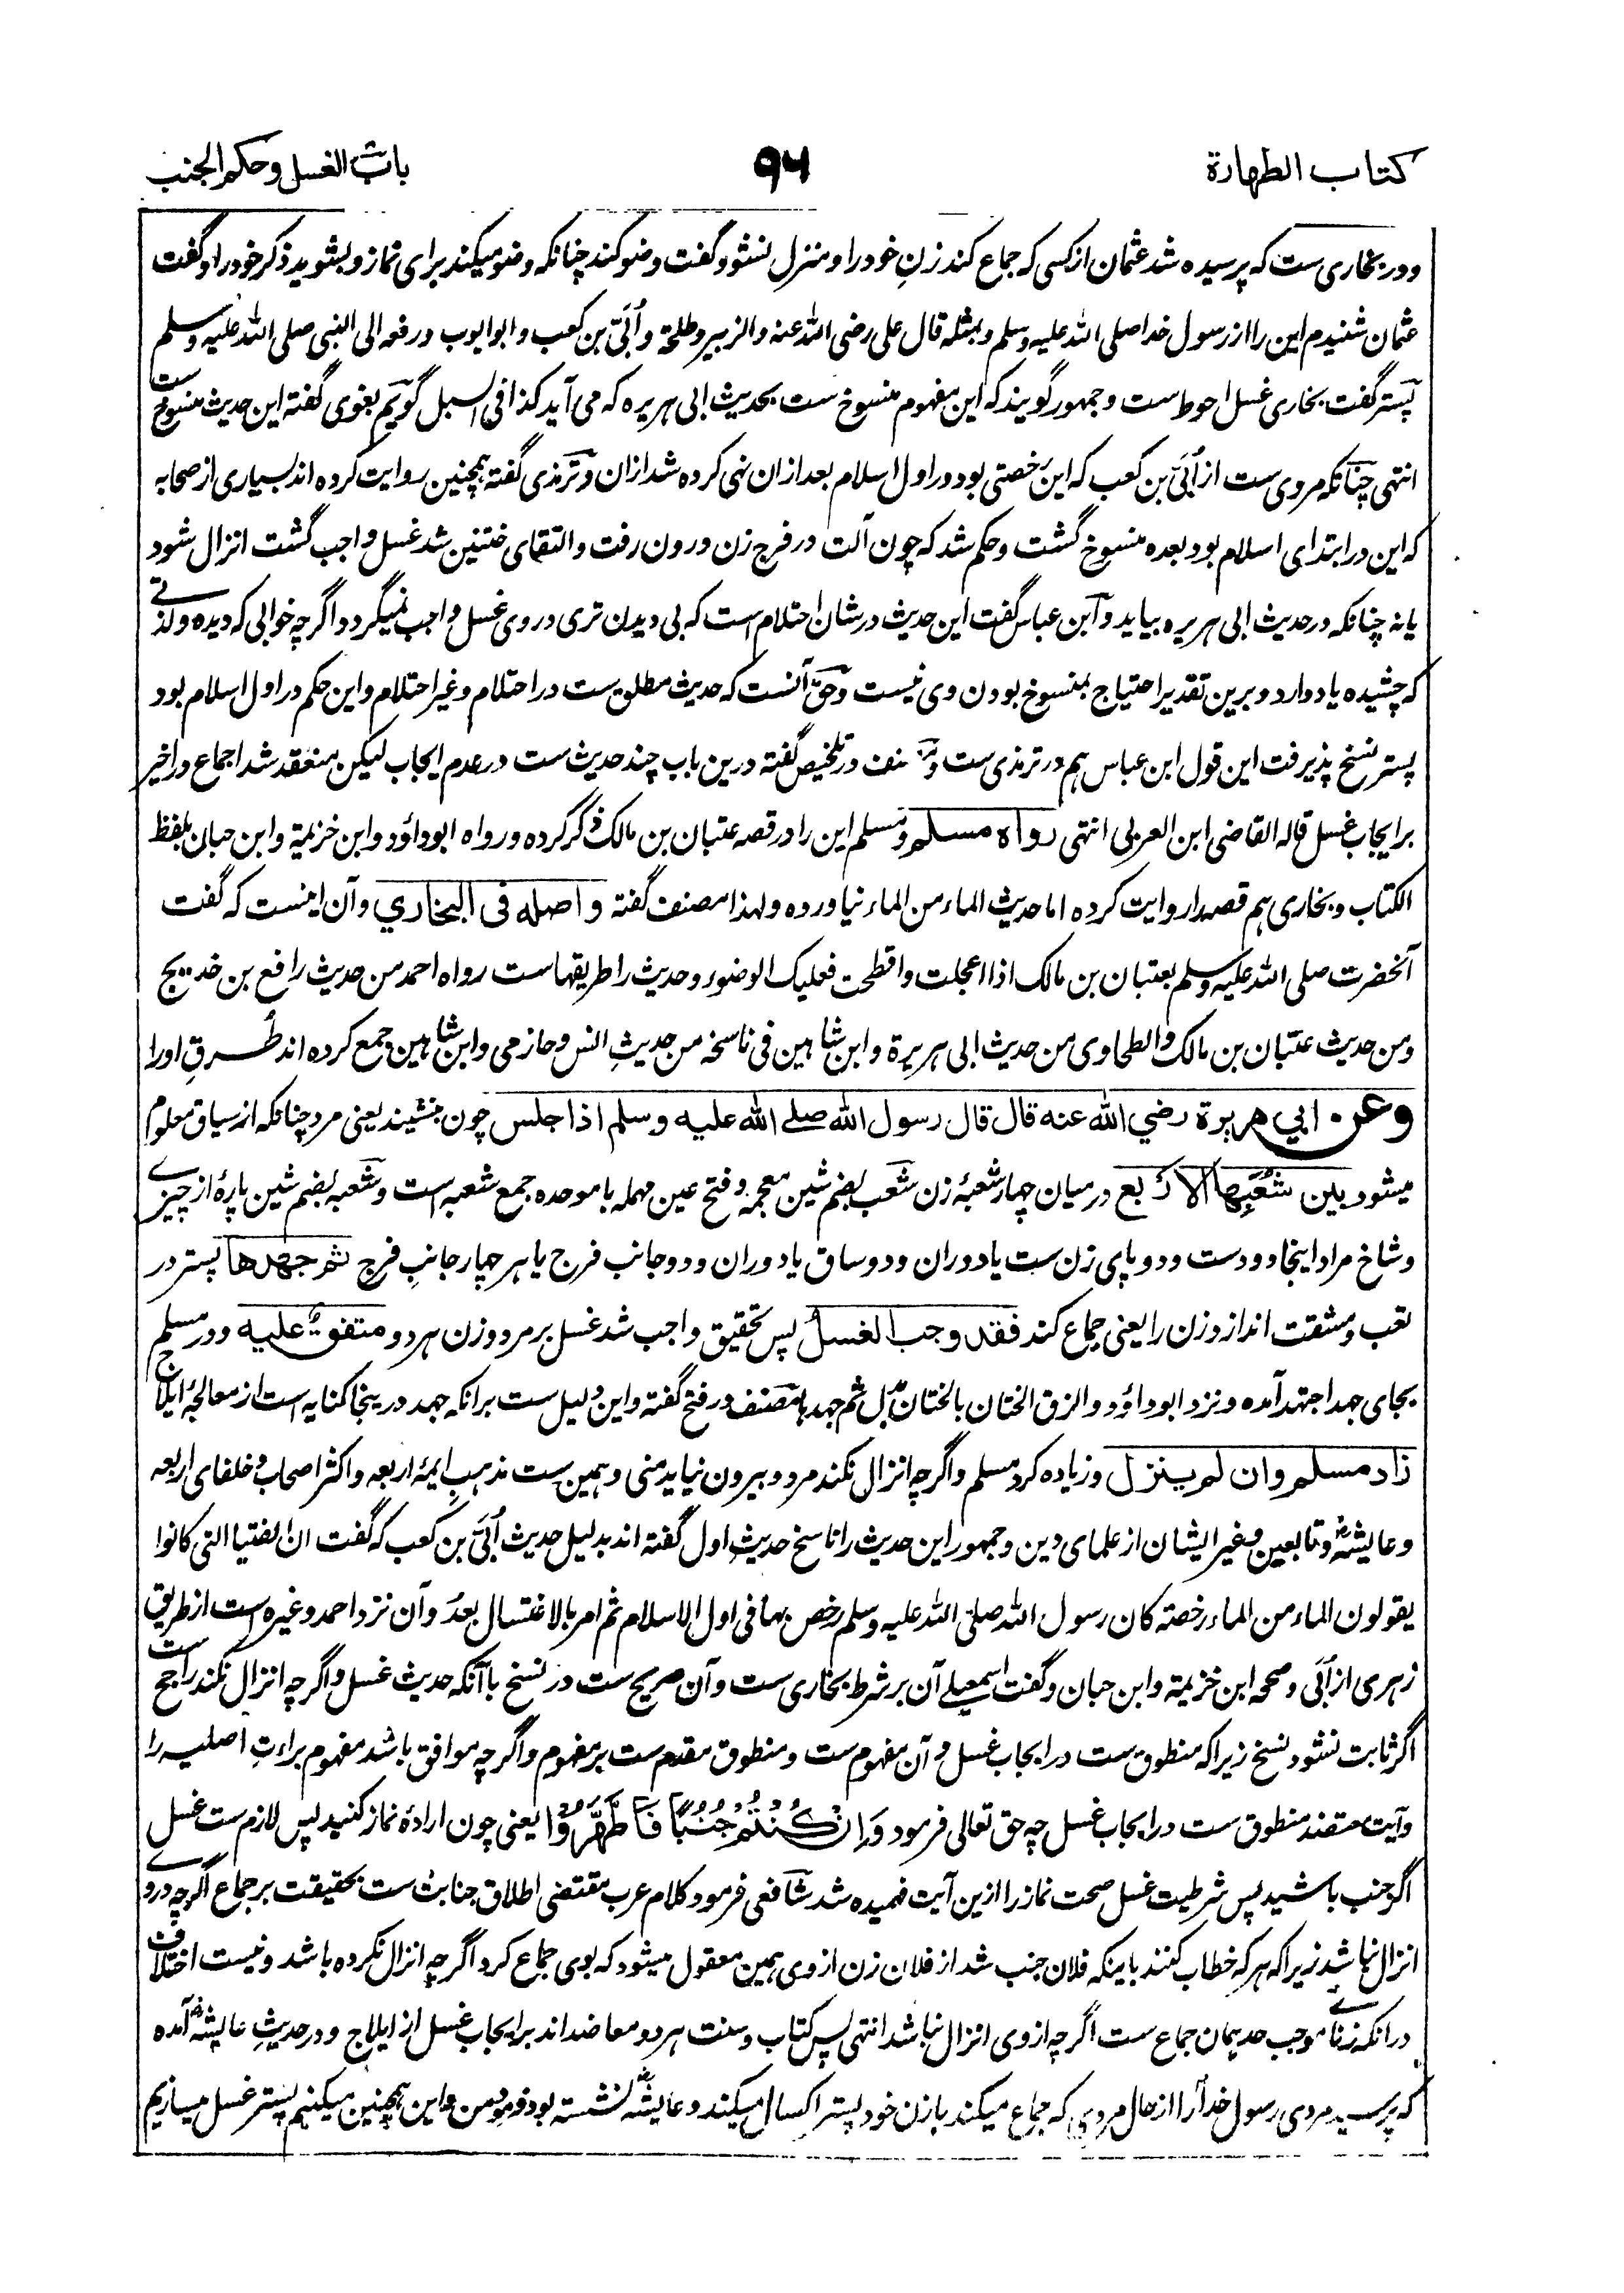 كتاب الطهارة
۹۴
باب الغسل وحكم الجنب
ودر بخاری ست که پرسیده شد عثمان از کسی که جماع کند زنِ خود را و منزل نشود گفت وضو کند چنانکه وضو میکند برای نماز و بشوید ذکر خود را و گفت
عثمان شنیدم این را از رسول خدا صلی الله علیه وسلم و بمثله قال علی رضی الله عنه والزبیر و طلحة و اُبَیّ بن کعب و ابو ایوب و رفعه الی النبی صلی الله علیه وسلم
پستر گفت بخاری غسل احوط ست و جمهور گویند که این مفهوم منسوخ ست بحدیث ابی هریره که می آید کذا فی السبل گویم بغوی گفته این حدیث منسوخ ست
انتهی چنانکه مروی ست از اُبَیّ بن کعب که این رخصتی بود در اول اسلام بعد ازان نهی کرده شد ازان و ترمذی گفته همچنین روایت کرده اند بسیاری از صحابه
که این در ابتدای اسلام بود بعده منسوخ گشت و حکم شد که چون آلت در فرج زن درون رفت و التقای ختنین شد غسل واجب گشت انزال شود
یا نه چنانکه در حدیث ابی هریره بیاید و ابن عباس گفت این حدیث در شان احتلام است که بی دیدن تری در وی غسل واجب نمیگردد اگرچه خوابی که دیده و لذتے
که چشیده یاد دارد و برین تقدیر احتیاج بمنسوخ بودن وی نیست و حق آنست که حدیث مطلق ست در احتلام و غیر احتلام و این حکم در اول اسلام بود
پستر نسخ پذیرفت این قول ابن عباس هم در ترمذی ست و مصنف در تلخیص گفته درین باب چند حدیث ست در عدم ایجاب لیکن منعقد شد اجماع در اخیر
بر ایجاب غسل قاله القاضی ابن العربی انتهی رواه مسلم و مسلم این را در قصه عتبان بن مالک ذکر کرده و رواه ابو داؤد و ابن خزیمة و ابن حبان بلفظ
الکتاب و بخاری هم قصه را روایت کرده اما حدیث الماء من الماء نیاورده و لهذا مصنف گفته واصله فی البخاري و آن اینست که گفت
آنحضرت صلی الله علیه وسلم بعتبان بن مالک اذا اعجلت و اقحطت فعلیک الوضوء و حدیث را طریقهاست رواه احمد من حدیث رافع بن خدیج
و من حدیث عتبان بن مالک و الطحاوی من حدیث ابی هریرة و ابن شاهین فی ناسخه من حدیثِ انس و حازمی و ابن شاهین جمع کرده اند طُرقِ او را
وعن ابي هريرة رضي الله عنه قال قال رسول الله صلے الله عليه وسلم اذا جلس چون بنشیند یعنی مرد چنانکه از سیاق معلوم
میشود بين شُعَبِها الاربع در میان چهار شعبهٔ زن شعب بضم شین معجمه و فتح عین مهمله با موحده جمع شعبه است و شعبه بضم شین پارهٔ از چیزے
و شاخ مراد اینجا دو دست و دو پای زن ست یا دو ران و دو ساق یا دو ران و دو جانب فرج یا هر چهار جانبِ فرج ثم جهدها پستر در
تعب و مشقت اندازد زن را یعنی جماع کند فقد وجب الغسلُ پس تحقیق واجب شد غسل بر مرد و زن هر دو متفق علیه و در مسلم
بجای جهد اجتهد آمده و نزد ابو داؤد و الزق الختان بالختان بدل ثم جهدها مصنف در فتح گفته و این دلیل ست برانکه جهد درینجا کنایه است از معالجهٔ ایلاج
زاد مسلم وان لم ينزل و زیاده کرد مسلم و اگرچه انزال نکند مرد و بیرون نیاید منی و همین ست مذهب ایمهٔ اربعه و اکثر اصحاب و خلفای اربعه
و عایشه و تابعین و غیر ایشان از علمای دین و جمهور این حدیث را ناسخ حدیثِ اول گفته اند بدلیل حدیث اُبَیّ بن کعب که گفت ان الفتیا التی کانوا
یقولون الماء من الماء رخصة کان رسول الله صلی الله علیه وسلم رخص بها فی اول الاسلام ثم امر بالاغتسال بعدُ و آن نزد احمد و غیره است از طریق
زهری از اُبَی و صححه ابن خزیمة و ابن حبان و گفت اسمعیلے آن بر شرط بخاری ست و آن صریح ست در نسخ با آنکه حدیث غسل و اگرچه انزال نکند راجح ست
اگر ثابت نشود نسخ زیراکه منطوق ست در ایجاب غسل و آن مفهوم ست و منطوق مقدم ست بر مفهوم و اگرچه موافق باشد مفهوم براءتِ اصلیه را
و آیت معتضد منطوق ست در ایجاب غسل چه حق تعالی فرمود وَاِنْ كُنْتُمْ جُنُبًا فَاطَّهَّرُوْا یعنی چون ارادهٔ نماز کنید پس لازم ست غسل
اگر جنب باشید پس شرطیت غسل صحت نماز را ازین آیت فهمیده شد شافعی فرمود کلام عرب مقتضی اطلاق جنابت ست بحقیقت بر جماع اگرچه در وے
انزال نباشد زیراکه هر که خطاب کنند باینکه فلان جنب شد از فلان زن از وی همین معقول میشود که بوی جماع کرد اگرچه انزال نکرده باشد و نیست اختلاف
درانکه زنا موجب حد همان جماع ست اگرچه از وی انزال نباشد انتهی پس کتاب و سنت هر دو معاضد اند بر ایجاب غسل از ایلاج و در حدیثِ عایشه آمده
که پرسید مردی رسول خدا را از حال مردی که جماع میکند با زن خود پستر اکسال میکند و عایشه نشسته بود فرمود من و این همچنین میکنیم پستر غسل میسازیم